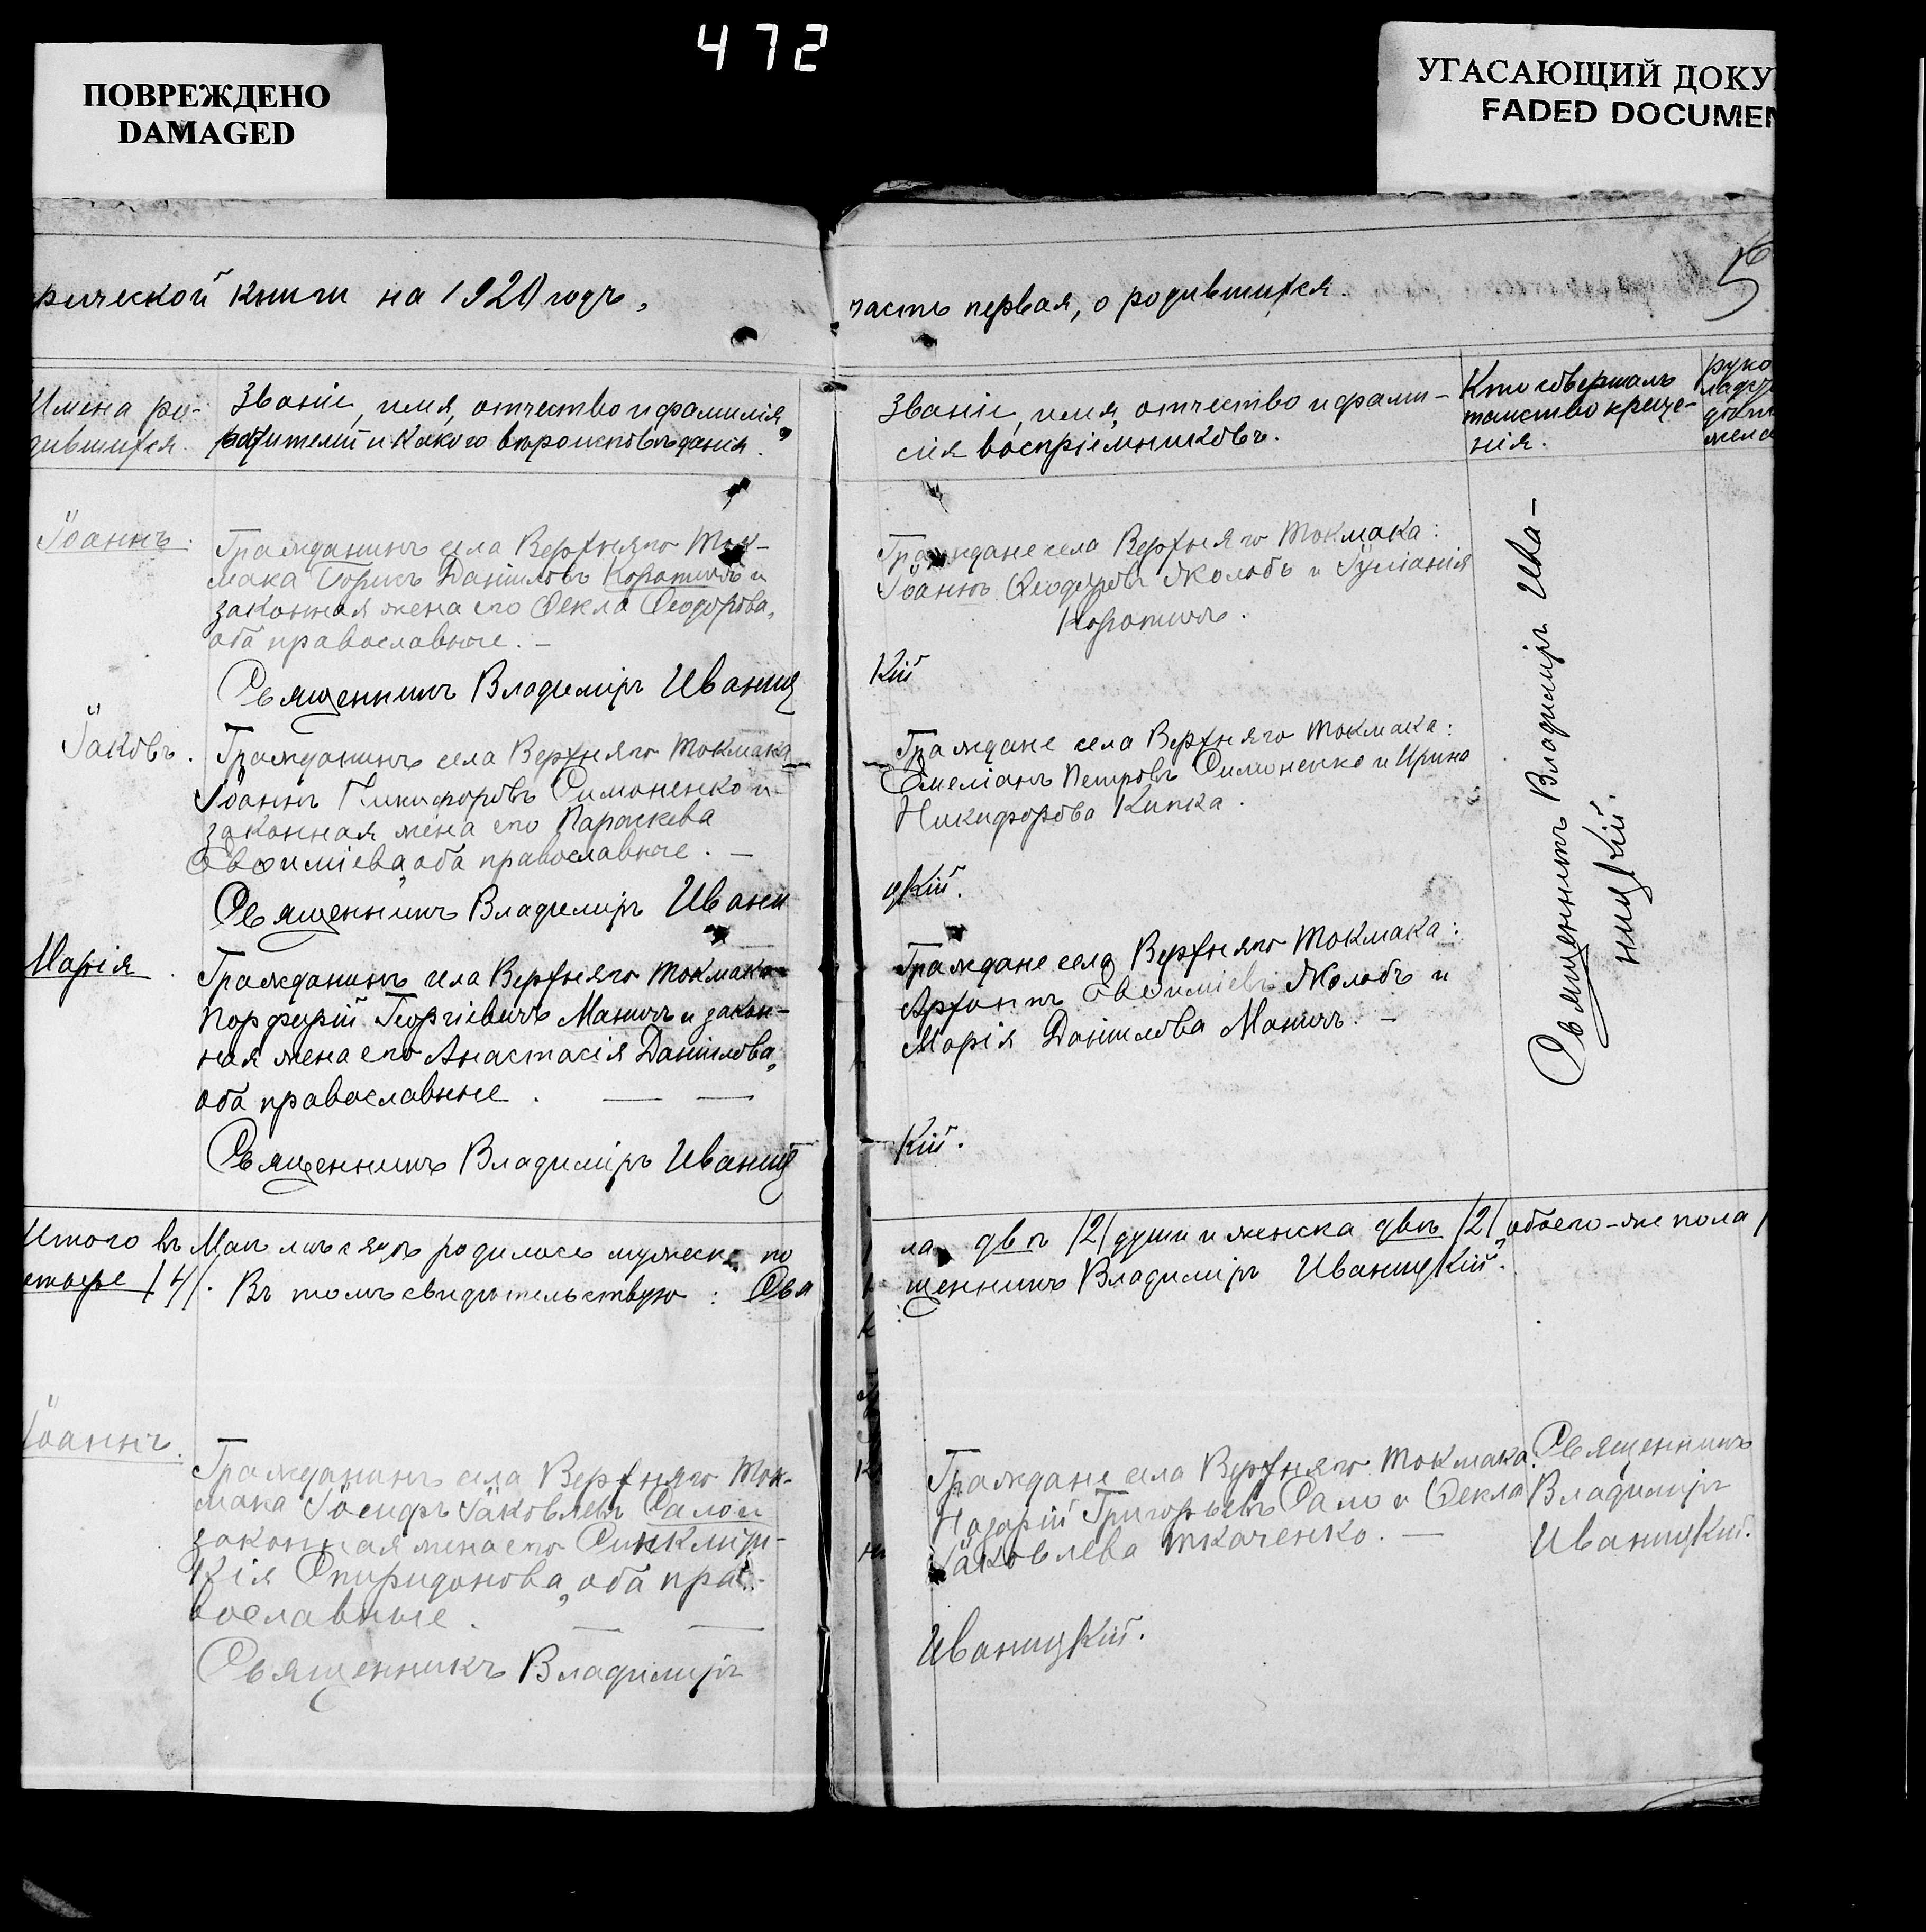 472
ПОВРЕЖДЕНО
DAMAGED
УГАСАЮЩИЙ ДОКУ
FADED DOCUMEN
рической книги на 1920 годъ,
часть первая, о родившихся.
Имена ро-
дившихся.
Званіе, имя, отчество и фамилія
родителей и какого вѣроисповѣданія.
Званіе, имя, отчество и фами-
лія воспріемниковъ.
Кто совершалъ
таинство креще-
нія.
Іоаннъ.
Гражданинъ села Верхняго Ток-
мака Даніиловъ Коротичъ и
законная жена его Ѳекла Ѳеодорова,
оба православные. —
Священникъ Владиміръ Иваниц
Граждане села Верхняго Токмака:
Іоаннъ Ѳеодоровъ Жолобъ и Іуліанія
Коротичъ.
кій
Іаковъ.
Гражданинъ села Верхняго Токмака
Іоаннъ Никифоровъ Симоненко и
законная жена его Параскева
Евѳиміева, оба православные. —
Священникъ Владиміръ Ивани
Граждане села Верхняго Токмака:
Емеліанъ Петровъ Симоненко и Ирина
Никифорова Кипка.
цкій.
Марія
Гражданинъ села Верхняго Токмака
Порфирій Георгіевичъ Маничъ и закон-
ная жена его Анастасія Даніилова,
оба православные. — —
Священникъ Владиміръ Иваниц
Граждане села Верхняго Токмака:
Евѳиміевъ Жолобъ и
Марія Даніилова Маничъ. —
кій.
Священникъ Владиміръ Ива-
ницкій.
Итого въ Маѣ мѣсяцѣ родилось мужеска по
ла двѣ /2/ души и женска двѣ /2/ обоего-же пола
етыре /4/. Въ томъ свидѣтельствую: Свя
щенникъ Владиміръ Иваницкій.
Іоаннъ.
Гражданинъ села Верхняго Ток-
мака Іосифъ Іаковлевъ Сало и
законная жена его Синклити-
кія Спиридонова, оба пра-
вославные. — —
Священникъ Владиміръ
Граждане села Верхняго Токмака:
Назарій Григорьевъ Сало и Ѳекла
Іаковлева Ткаченко. —
Иваницкій.
Священникъ
Владиміръ
Иваницкій.